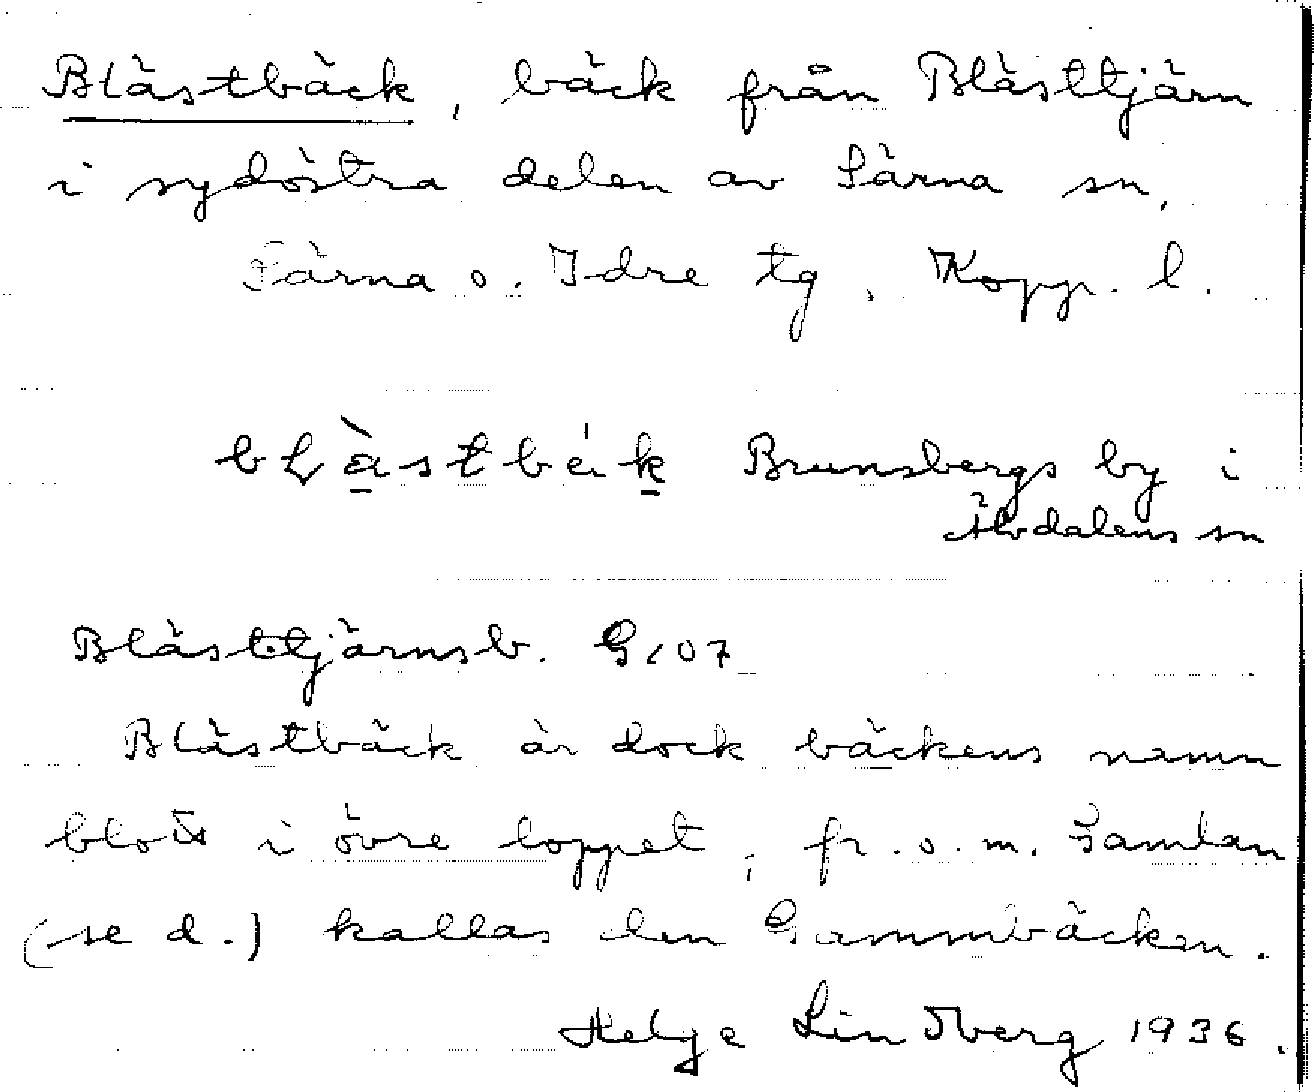 Blästbäck, bäck från Blästtjärn
i sydöstra delen av Särna sn,
Särna o. Idre tg, Kopp. l.
Brunsbergs by i
Älvdalens sn
Blästtjärnsb. G107
Blästbäck är dock bäckens namn
blott i övre loppet; fr.o.m.
(se d.) kallas den Gammbäcken.
Helge Lindberg 1936.